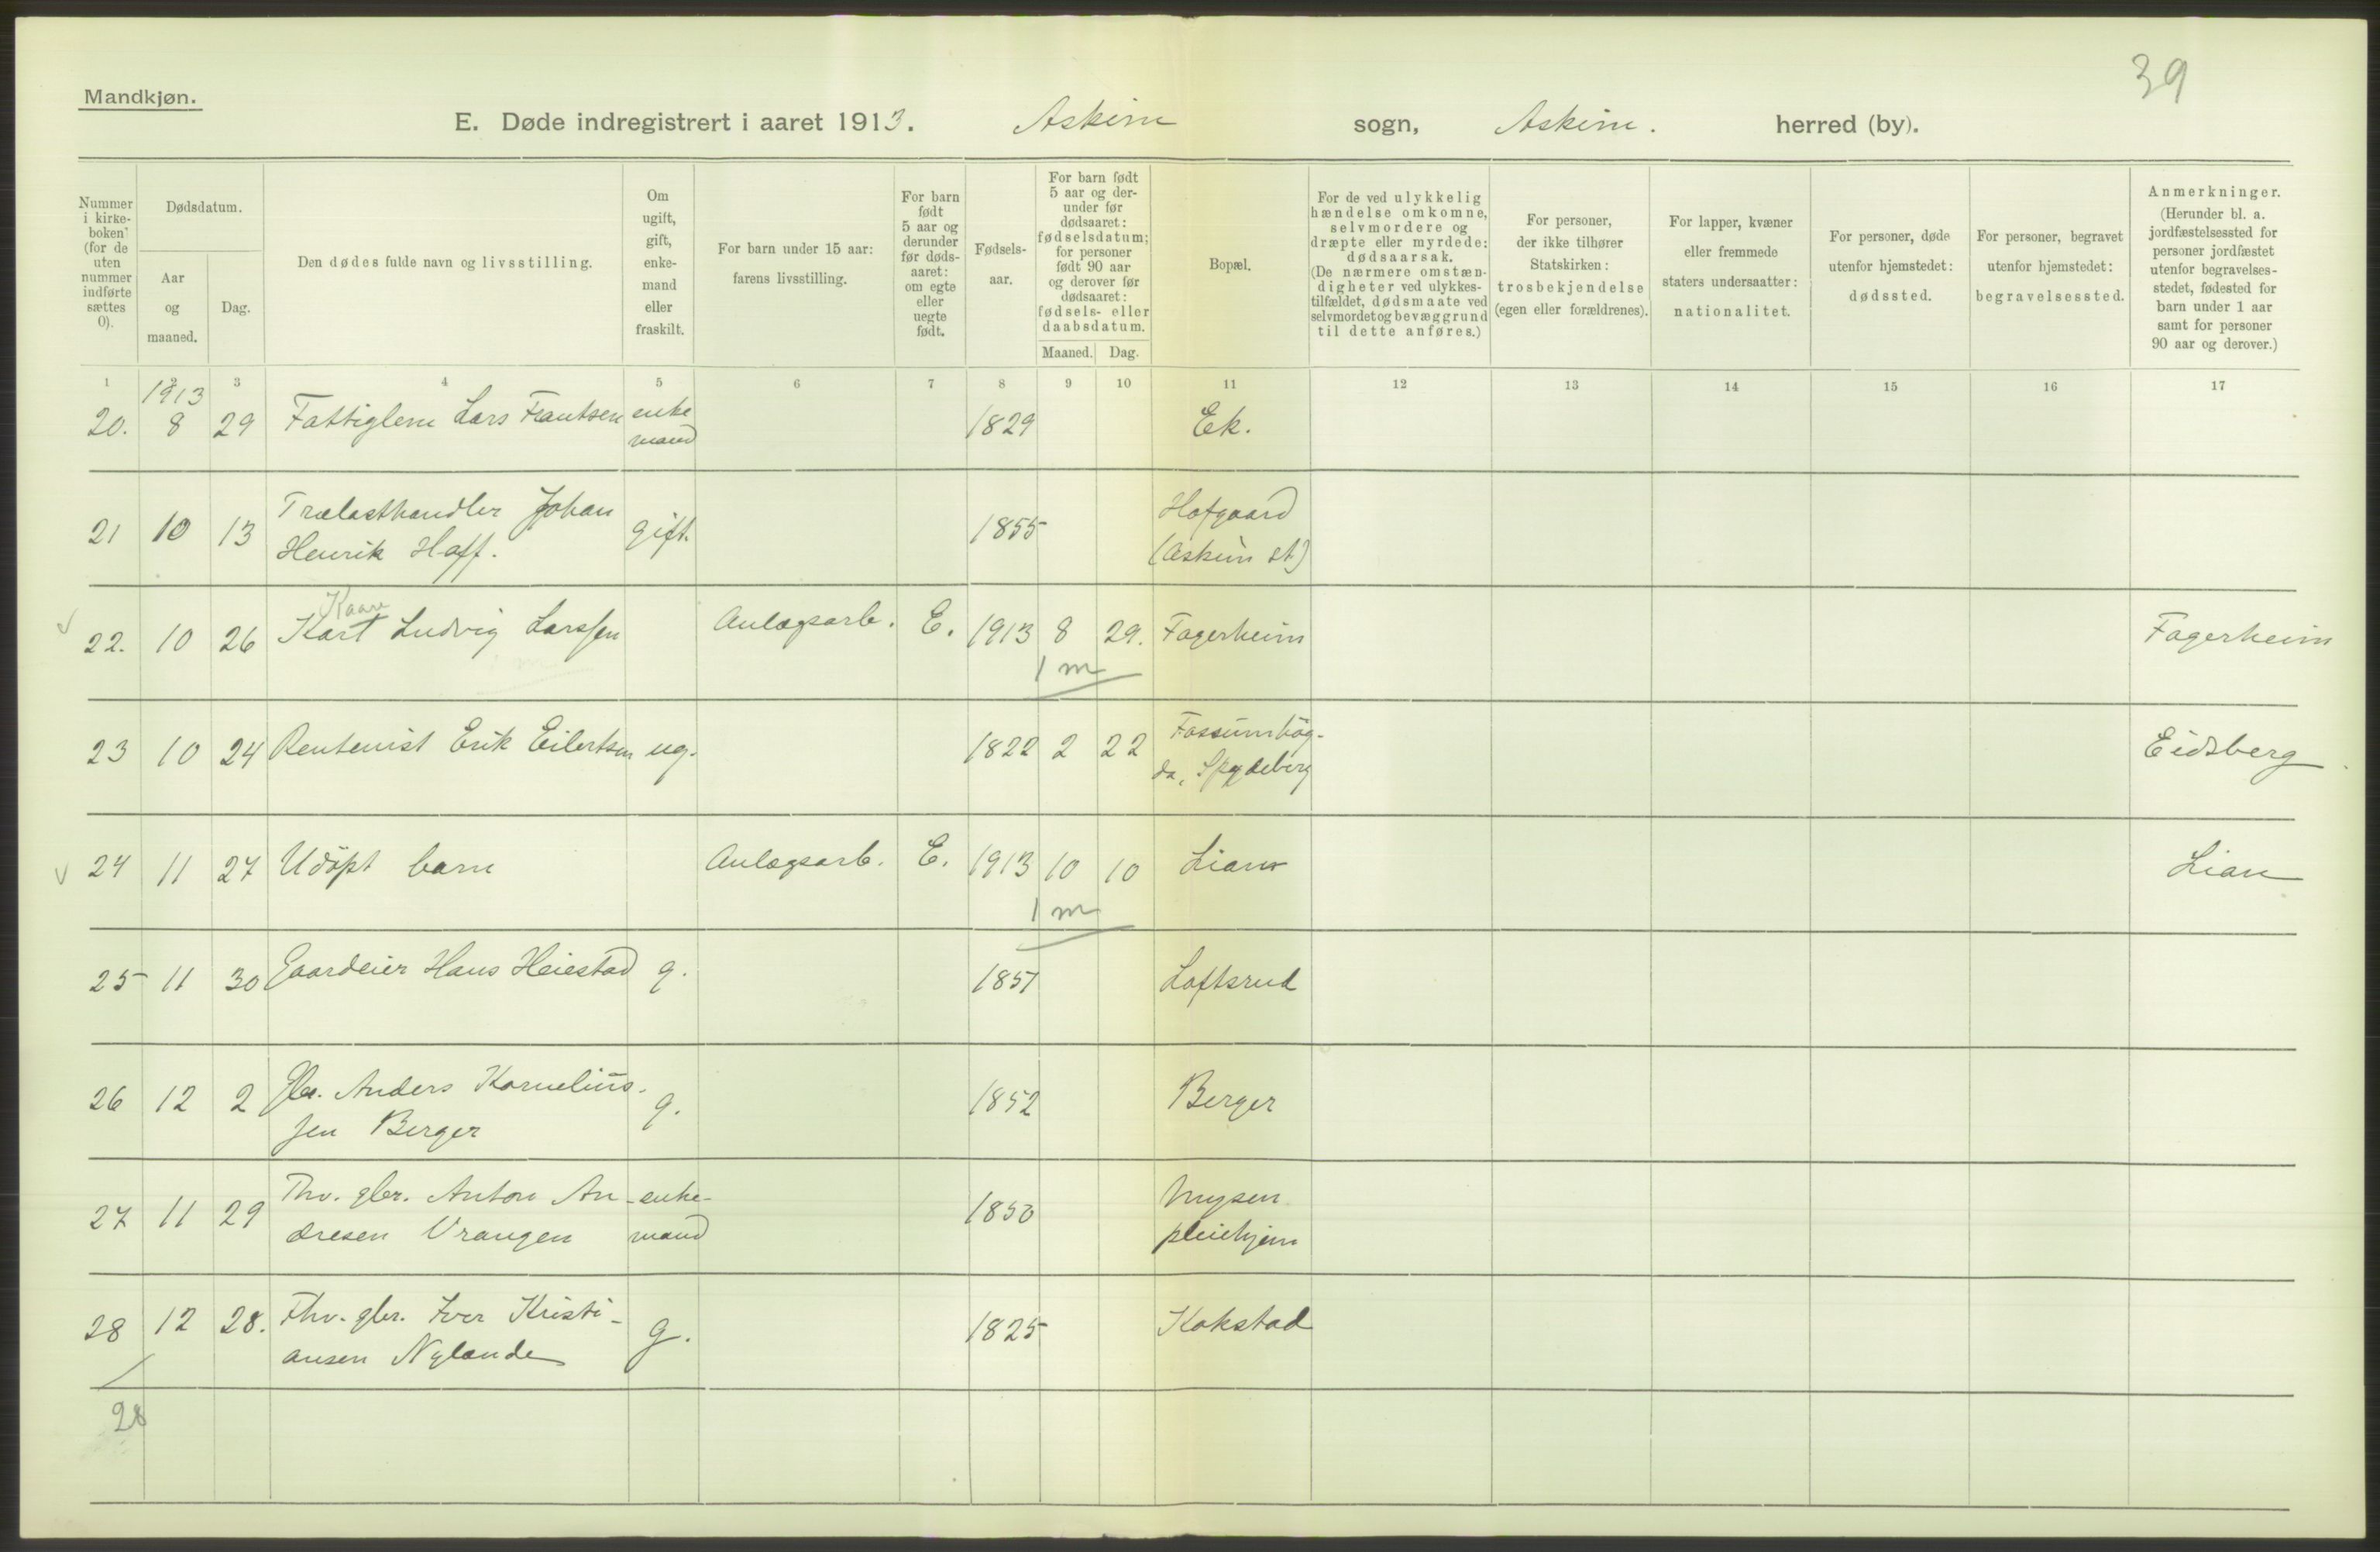 39
Mandkjøn.
E. Døde indregistrert i aaret 1913. Askim sogn, Askim. herred (by).
Nummer i kirke-boken (for de uten nummer indførte sættes 0).
Dødsdatum.
Aar og maaned.
Dag.
Den dødes fulde navn og livsstilling.
Om ugift, gift, enke-mand eller fraskilt.
For barn under 15 aar: farens livsstilling.
For barn født 5 aar og derunder før døds-aaret: om egte eller uegte født.
Fødsels-aar.
For barn født 5 aar og der-under før dødsaaret: fødselsdatum; for personer født 90 aar og derover før dødsaaret: fødsels- eller daabsdatum.
Maaned. Dag.
Bopæl.
For de ved ulykkelig hændelse omkomne, selvmordere og dræpte eller myrdede: dødsaarsak. (De nærmere omstæn-digheter ved ulykkes-tilfældet, dødsmaate ved selvmordet og bevæggrund til dette anføres.)
For personer, der ikke tilhører Statskirken: trosbekjendelse (egen eller forældrenes).
For lapper, kvæner eller fremmede staters undersaatter: nationalitet.
For personer, døde utenfor hjemstedet: dødssted.
For personer, begravet utenfor hjemstedet: begravelsessted.
Anmerkninger. (Herunder bl. a. jordfæstelsessted for personer jordfæstet utenfor begravelses-stedet, fødested for barn under 1 aar samt for personer 90 aar og derover.)
1 2 3 4 5 6 7 8 9 10 11 12 13 14 15 16 17
1913
20. 8 29 Fattiglem Lars Frantsen enke 1829 Ek.
mand
21 10 13 Trælasthandler Johan gift. 1855 Hofgaard
Henrik Hoff. (Askim st.)
Kaare
22. 10 26 Kart Ludvig Larssen Anlægsarb. E. 1913 8 29. Fagerheim Fagerheim
1 m
23 10 24 Rentenist Erik Eilertsen ug. 1822 2 22 Fossumhøg- Eidsberg
da, Spydeberg
24 11 27 Udøpt barn Anlægsarb. E. 1913 10 10 Lian Lian
1 m
25 11 30 Gaardeier Hans Heiestad g. 1851 Loftsrud
26 12 2 Gbr. Anders Kornelius- g. 1852 Berger
sen Berger
27 11 29 Fhv. gbr. Anton An- enke- 1850 Mysen
dresen Vrangen mand pleiehjem
28 12 28. Fhv. gbr. Iver Kristi- g. 1825 Kokstad
ansen Nylænde
28